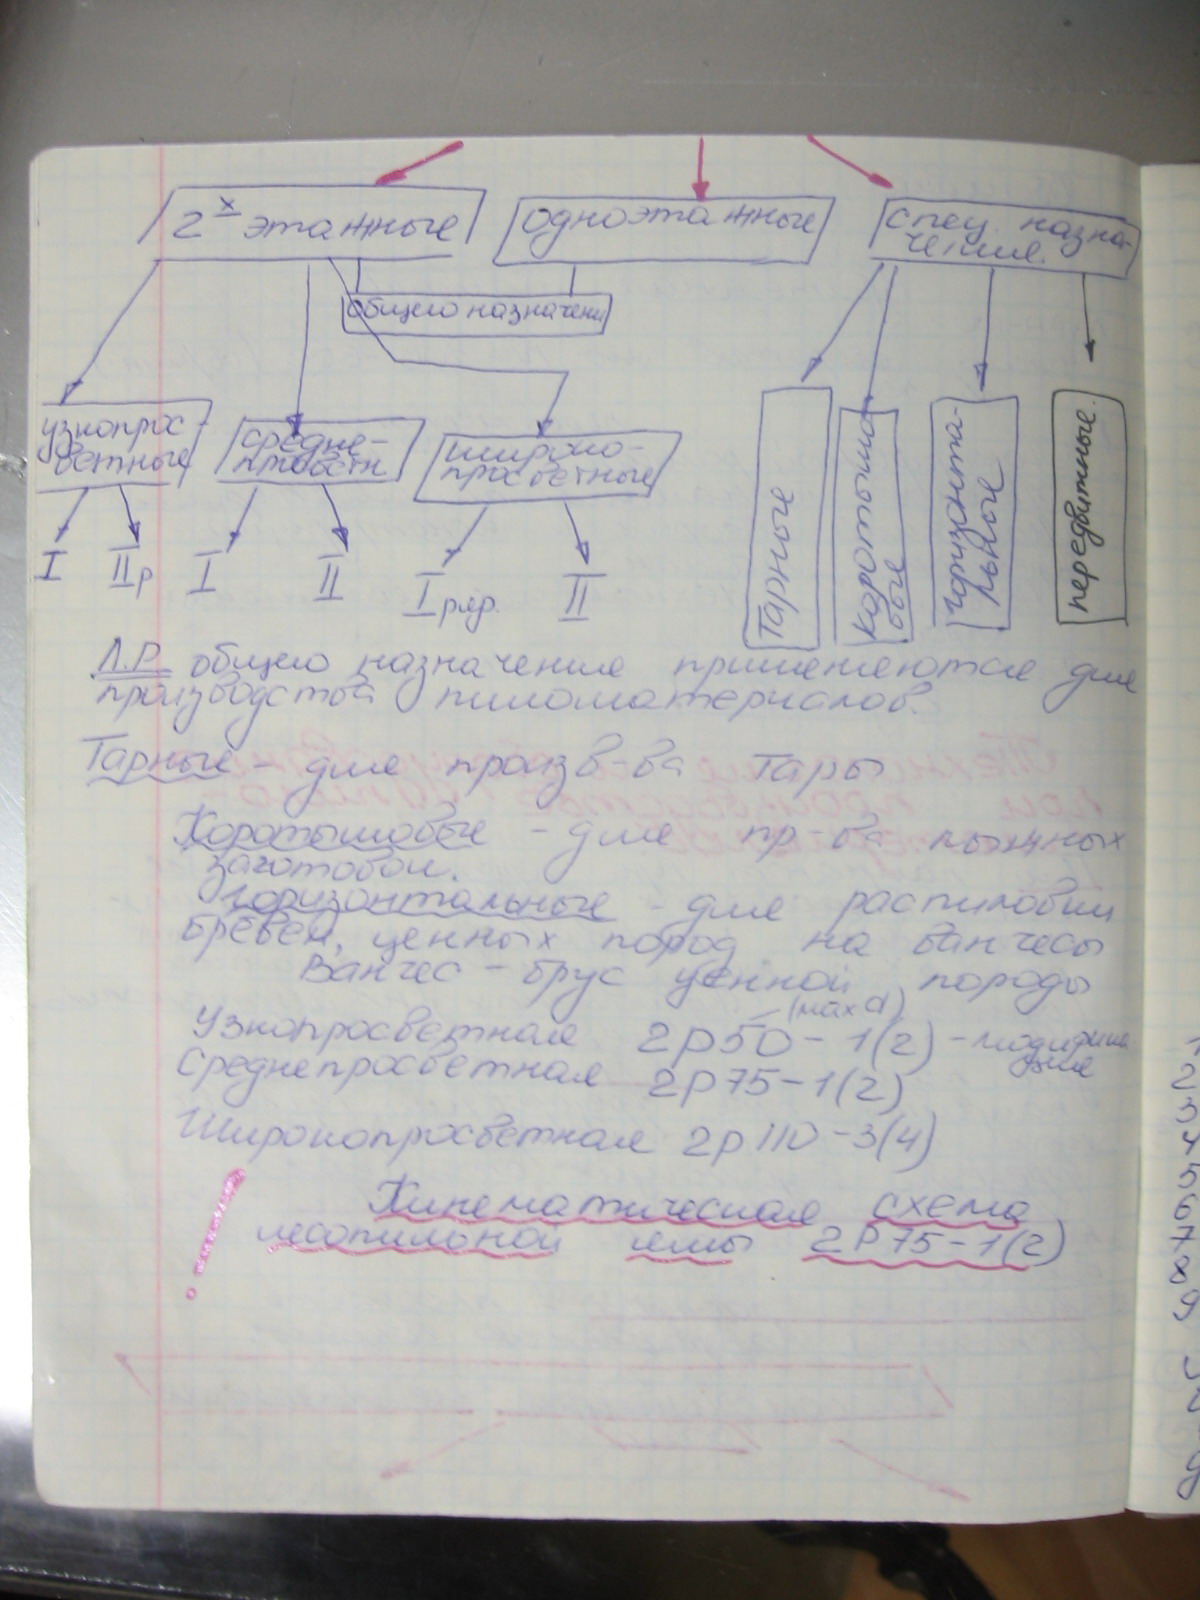 2х этажные
одноэтажные
спец. назна-
чения.
общего назначени
узкопрос-
ветные
средне-
просветн
широко-
просветные
Тарные
коротышо-
вые
горизонта-
льные
передвижные.
I
IIр
I
II
I ряд.
II
Л.Р. общего назначения применяются для
производства пиломатериалов.
Тарные - для произв-ва тары
Коротышовые - для пр-ва лыжных
заготовок.
Горизонтальные - для распиловки
бревен, ценных пород на ванчесы
Ванчес - брус ценной породы
(max d)
Узкопросветная 2р50 - 1(2) - модифика
ция
Среднепросветная 2р75-1(2)
Широкопросветная 2р110-3(4)
Кинематическая схема
лесопильной рамы 2Р75-1(2)
1
2
3
4
5
6
7
8
9